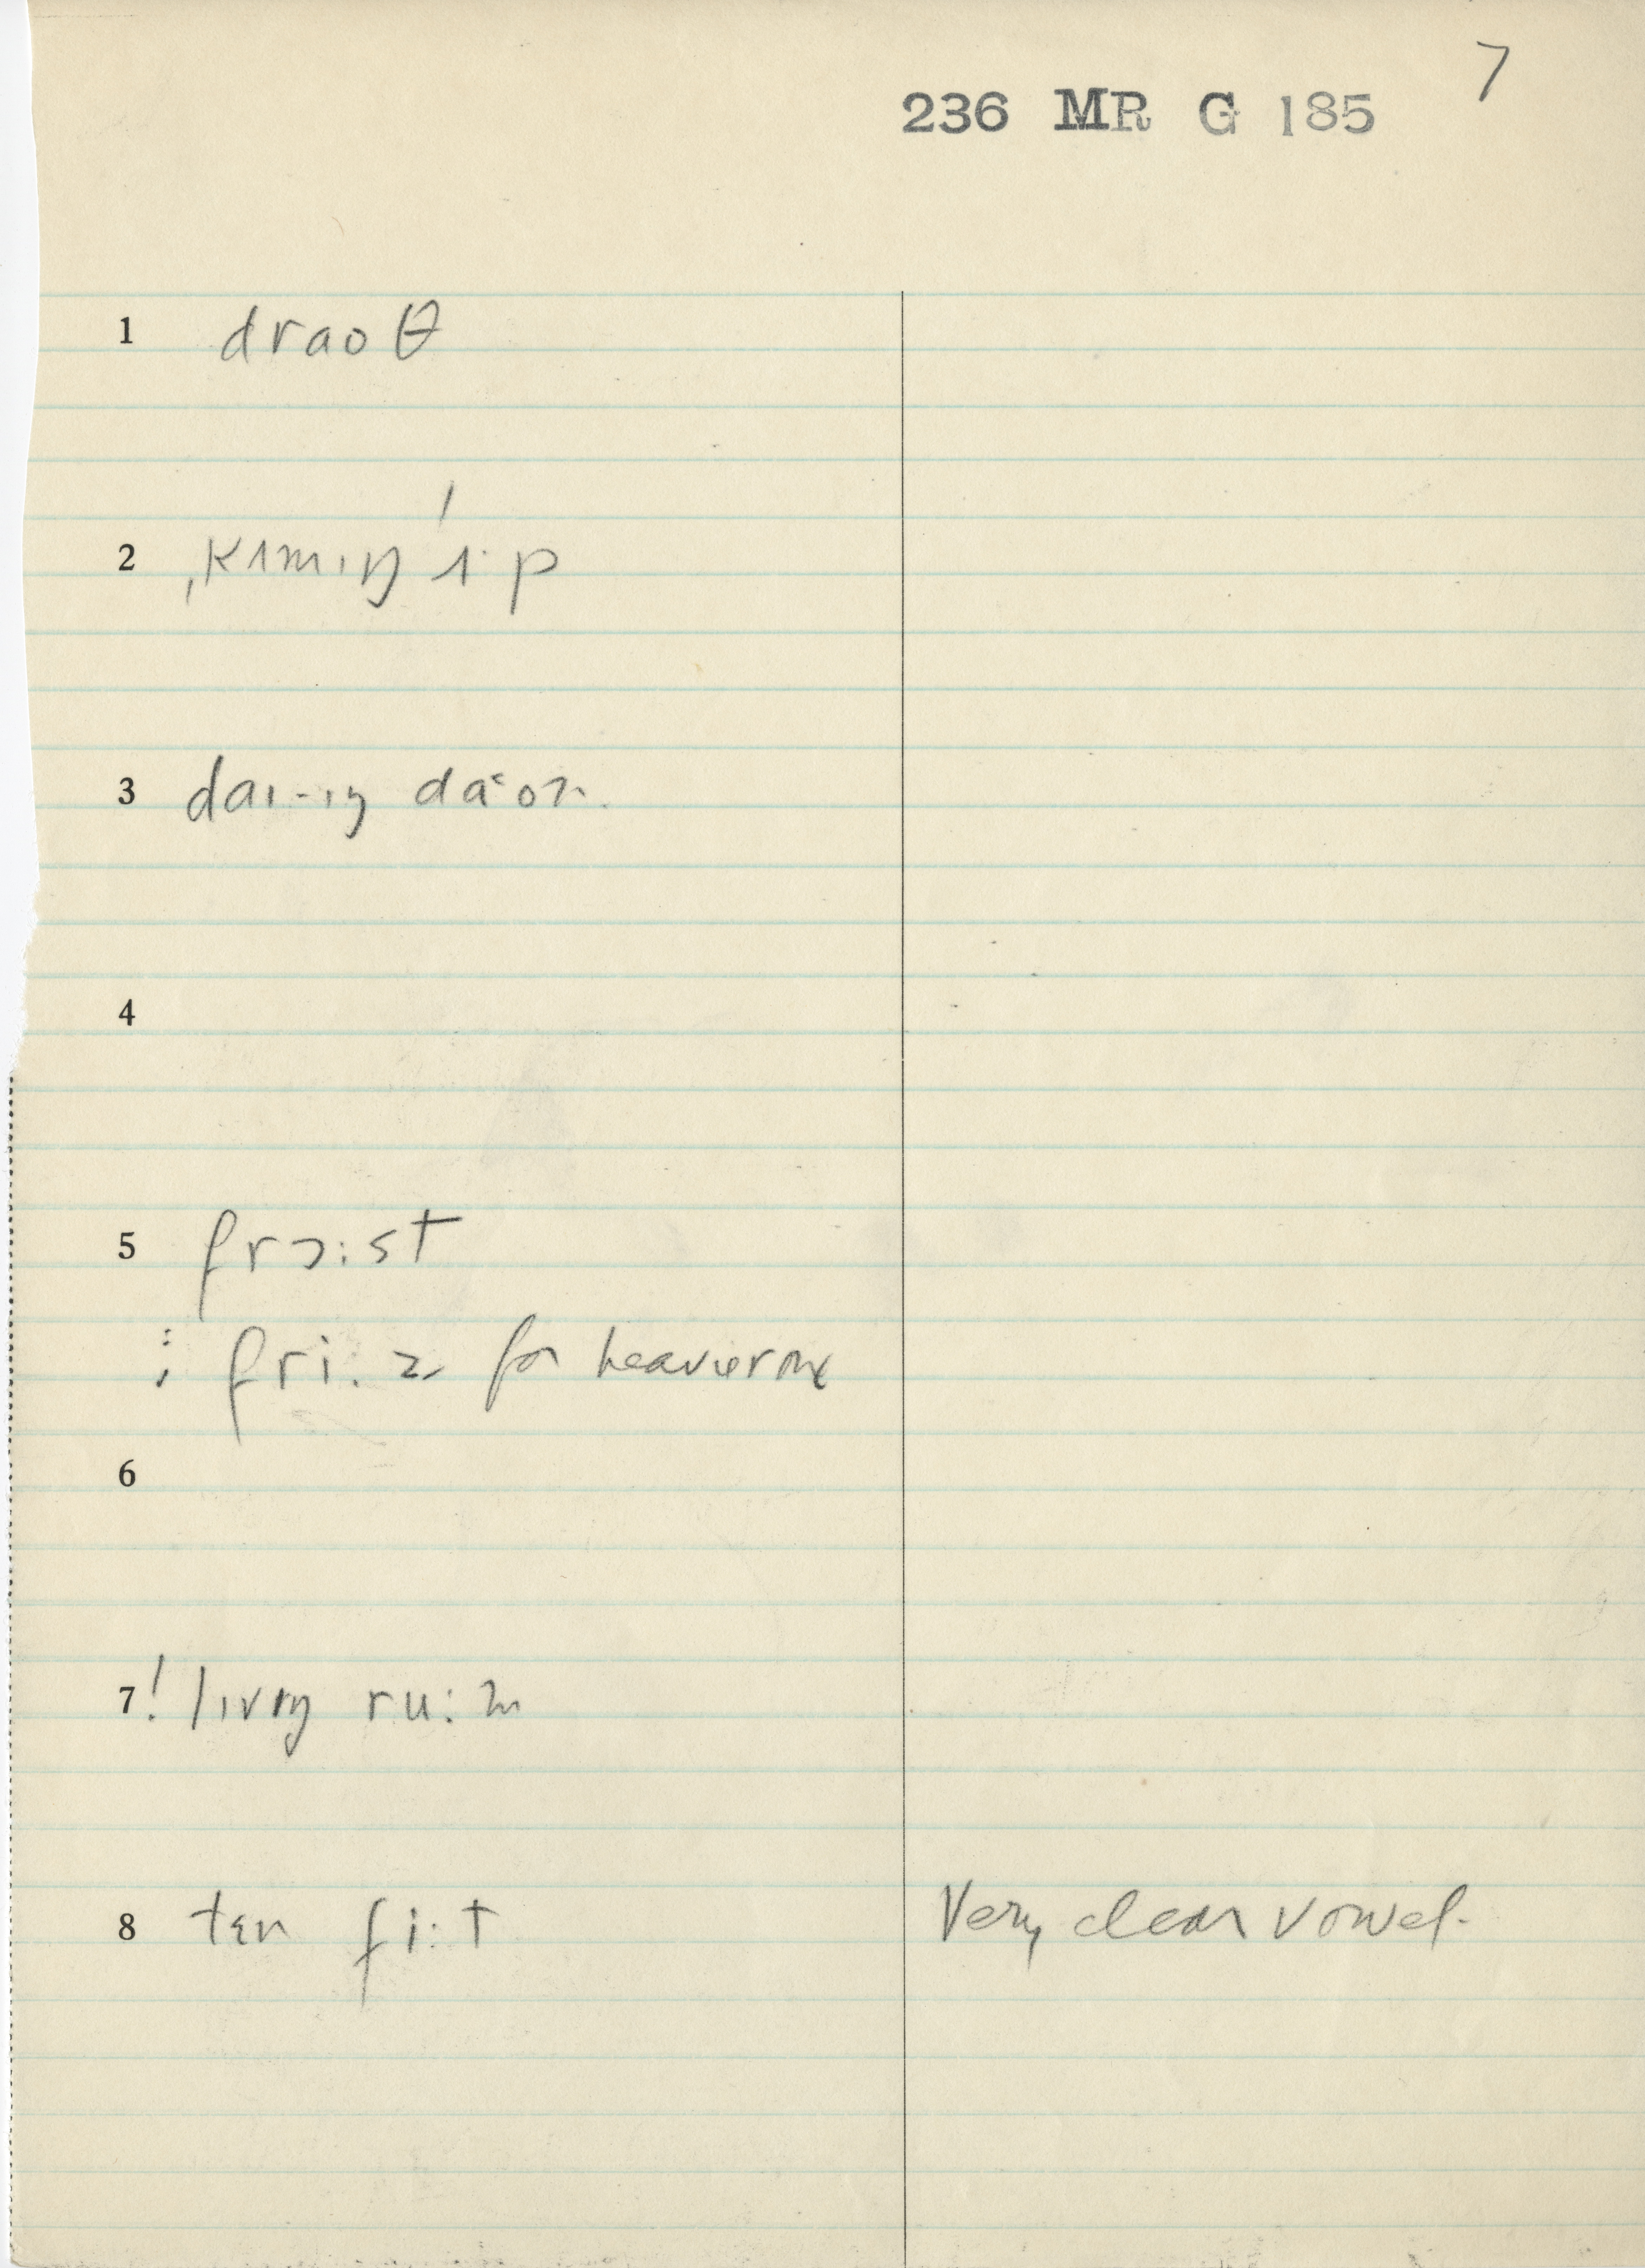 7
236 MR G 185
1 draoθ
2 ˌkʌmɪŋ ʌ·p
3 daɪ-ɪŋ da·on
4
5 frɔ:st
⁝ fri:z for heavier one
6
7 ! lɪvɪŋ ru:m
8 tɛn fi:t Very clear vowel.